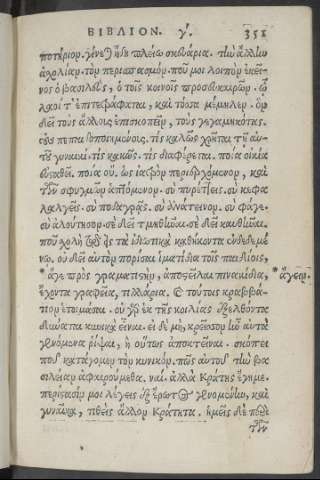 ΒΙΒΛΙΟΝ. γ'. 351
ποτήριον. γίνεται ἤδη πλείω σκευάρια. τὴν ἄλλην
ἀχολίαν. τὸν περισπασμόν. ποῦ μοι λοιπὸν ἐκεῖ-
νος ὁ βασιλεὺς, ὁ τοῖς κοινοῖς προσδικαιρῶν. ᾧ
λαοί τ' ἐπιτετράφαται, καὶ τόσα μέμηλεν. ὃν
δεῖ τοὺς ἄλλους ἐπισκοπεῖν, τοὺς γεγαμηκότας.
τοὺς πεπαιδοποιημένους. τίς καλῶς χρῆται τῇ αὐ-
τοῦ γυναικί. τίς κακῶς. τίς διαφέρεται. ποία οἰκία
εὐσταθεῖ. ποία οὔ. ὡς ἰατρὸν περιερχόμενον, καὶ
τῶν σφυγμῶν ἁπτόμενον. σὺ πυρέττεις. σὺ κεφα
λαλγεῖς. σὺ ποδαγρᾷς. σὺ ἀνάτεινον. σὺ φάγε.
σὺ ἀλούτησον. σὲ δεῖ τμηθῆναι. σὲ δεῖ καυθῆναι.
ποῦ χολὴ τῷ εἰς τὰ ἰδιωτικὰ καθήκοντα ἐνδεδεμέ
νῳ. οὐ δεῖ αὐτὸν πορίσαι ἱματίδια τοῖς παιδίοις,
* ἄγε πρὸς γραματιστὴν, ἀποστεῖλαι πινακίδια, * ἄγειν.
ἔχοντα γραφεῖα, τιλλάρια. καὶ τούτοις κραββά-
τιον ἑτοιμάσαι. οὐ γὰρ ἐκ τῆς κοιλίας ἐξελθόντα
δύναται κυνικὰ εἶναι. εἰ δὲ μὴ, κρεῖσσον ἦν αὐτὰ
γενόμενα ῥίψαι, ἢ οὕτως ἀποκτεῖναι. σκόπει
ποῦ κατάγομεν τὸν κυνικόν. πῶς αὐτοῦ τὴν βα
σιλείαν ἀφαιρούμεθα. ναί. ἀλλὰ Κράτης ἔγημε.
περίστασίν μοι λέγεις ἐξ ἔρωτος γενομένην, καὶ
γυναῖκα, τιθεὶς ἄλλον Κράτητα. ἡμεῖς δὲ περὶ
τῶν